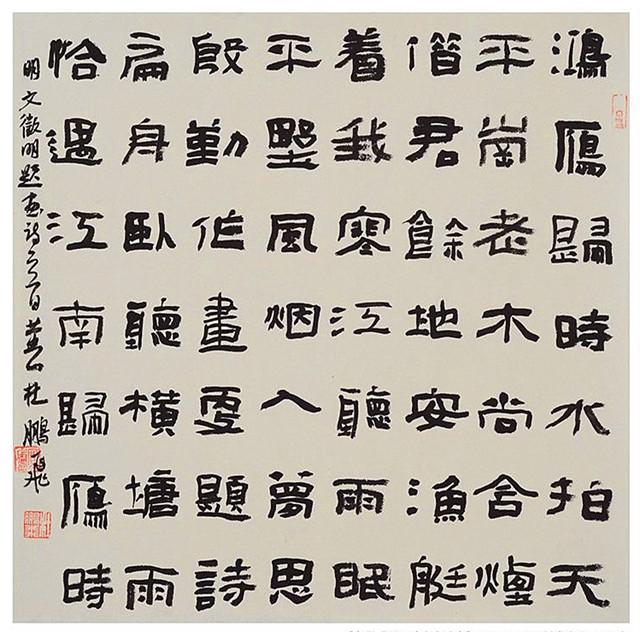 鴻鴈歸時水拍天
平崗老木尚含煙
借君餘地安漁艇
着我寒江聽雨眠
平墅風烟入夢思
殷勤作畫更題詩
扁舟臥聽橫塘雨
恰遇江南歸鴈時
明文徵明題畫詩二首 杜鵬飛